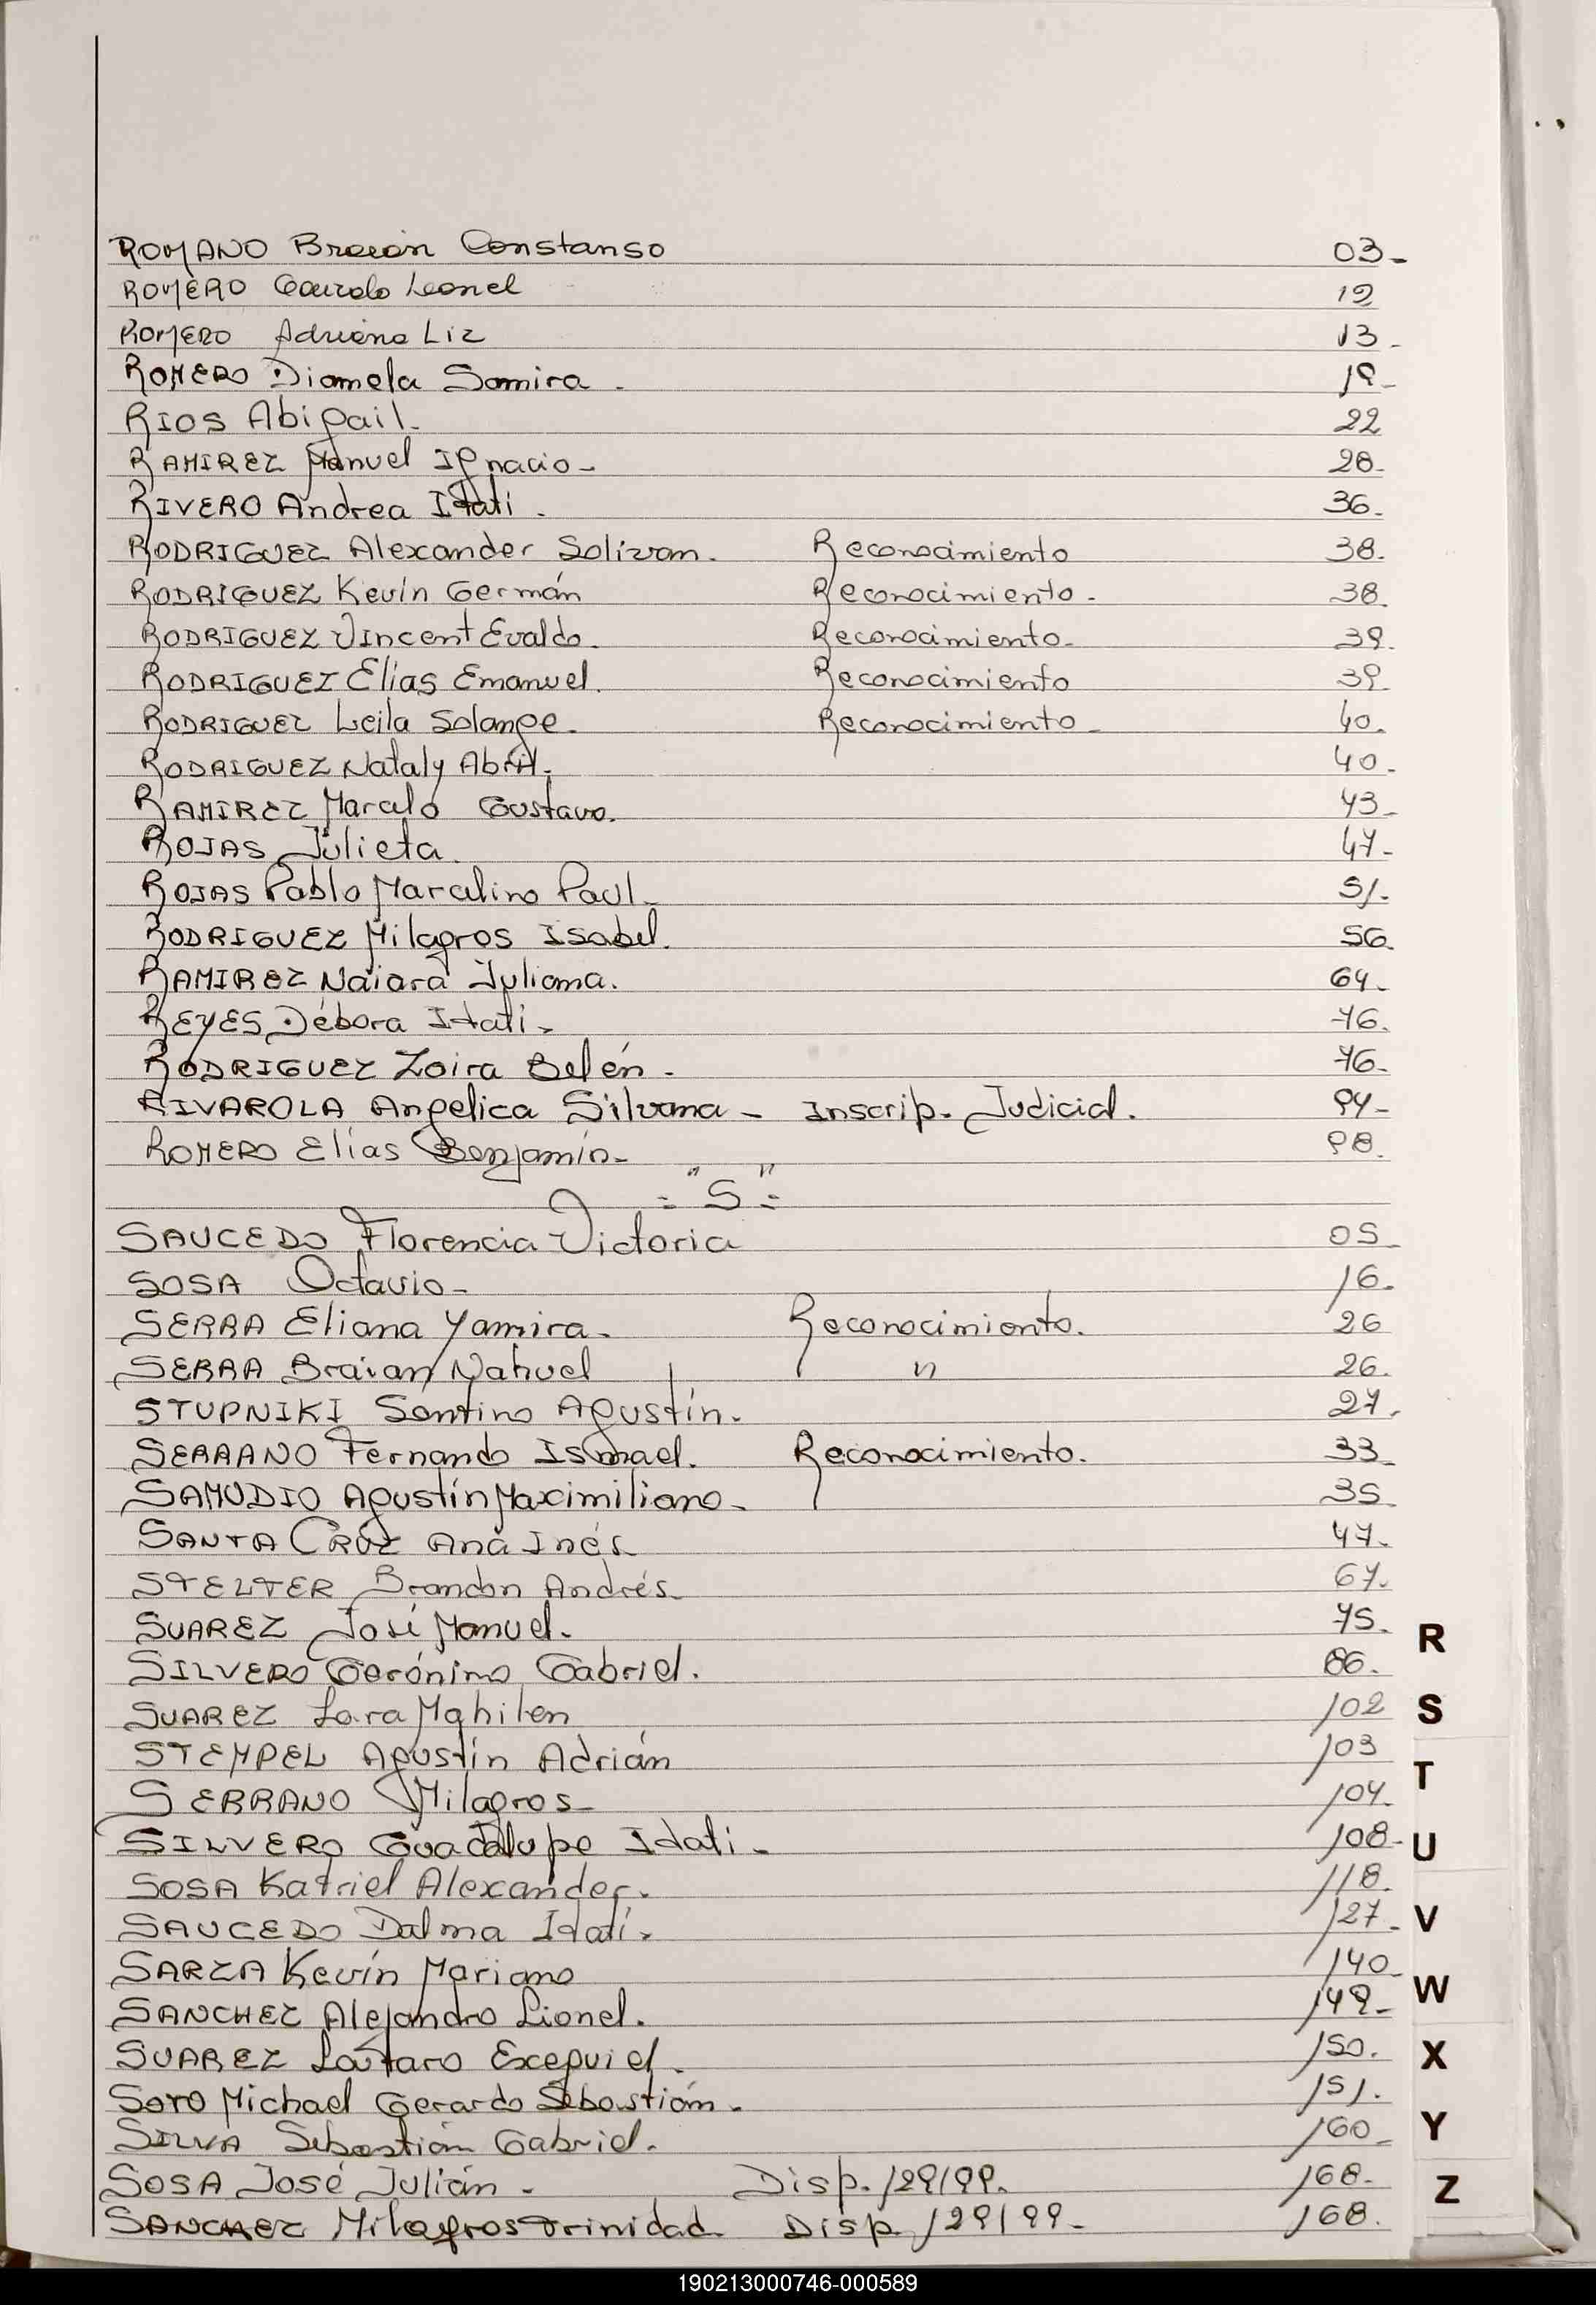 ROMANO Braian Constanso 03-
ROMERO Leonel 12
ROMERO Adriana Liz 13-
ROMERO Diamela Samira - 19-
RIOS Abigail- 22
RAMIREZ Manuel Ignacio- 28-
RIVERO Andrea Itati. 36-
RODRIGUEZ Alexander Solivan. Reconocimiento 38.
RODRIGUEZ Kevin Germán Reconocimiento- 38.
RODRIGUEZ Vincent Evaldo. Reconocimiento- 39.
RODRIGUEZ Elias Emanuel. Reconocimiento 39-
RODRIGUEZ Leila Solange- Reconocimiento- 40.
RODRIGUEZ Nataly Abril. 40-
RAMIREZ Marcelo Gustavo. 43-
ROJAS Julieta 47-
ROJAS Pablo Marcelino Paul- 51.
RODRIGUEZ Milagros Isabel. 56.
RAMIREZ Naiara Juliana. 64-
REYES Débora Itati- 76.
RODRIGUEZ Zoira Belén- 76-
RIVAROLA Angelica Silvana- Inscrip. Judicial. 94-
ROMERO Elías Benjamín- 98.
="S"=
SAUCEDO Florencia Victoria 05-
SOSA Octavio- 16-
SERRA Eliana Yamira- Reconocimiento. 26
SERRA Braian Nahuel " 26.
STUPNIKI Santino Agustín. 27.
SERRANO Fernando Ismael. Reconocimiento. 33-
SAMUDIO Agustín Maximiliano- 35-
SANTA CRUZ Ana Inés- 47-
STELTER Brandon Andrés- 67.
SUAREZ José Manuel. 75.
SILVERO Gerónimo Gabriel. 86.
SUAREZ Lara Mahilen 102
STEMPEL Agustín Adrián 103
SERRANO Milagros- 104-
SILVERO Guadalupe Itati- 108-
SOSA Katriel Alexander. 118.
SAUCEDO Dalma Itatí. 127-
SARZA Kevín Mariano 140-
SANCHEZ Alejandro Lionel. 149-
SUAREZ Lautaro Excequiel. 150.
SOTO Michael Gerardo Sebastián. 151.
SILVA Sebastián Gabriel. 160-
SOSA José Julián- Disp. 129/99. 168-
SANCHEZ Milagros Trinidad. Disp 129/99- 168.
R
S
T
U
V
W
X
Y
Z
190213000746-000589